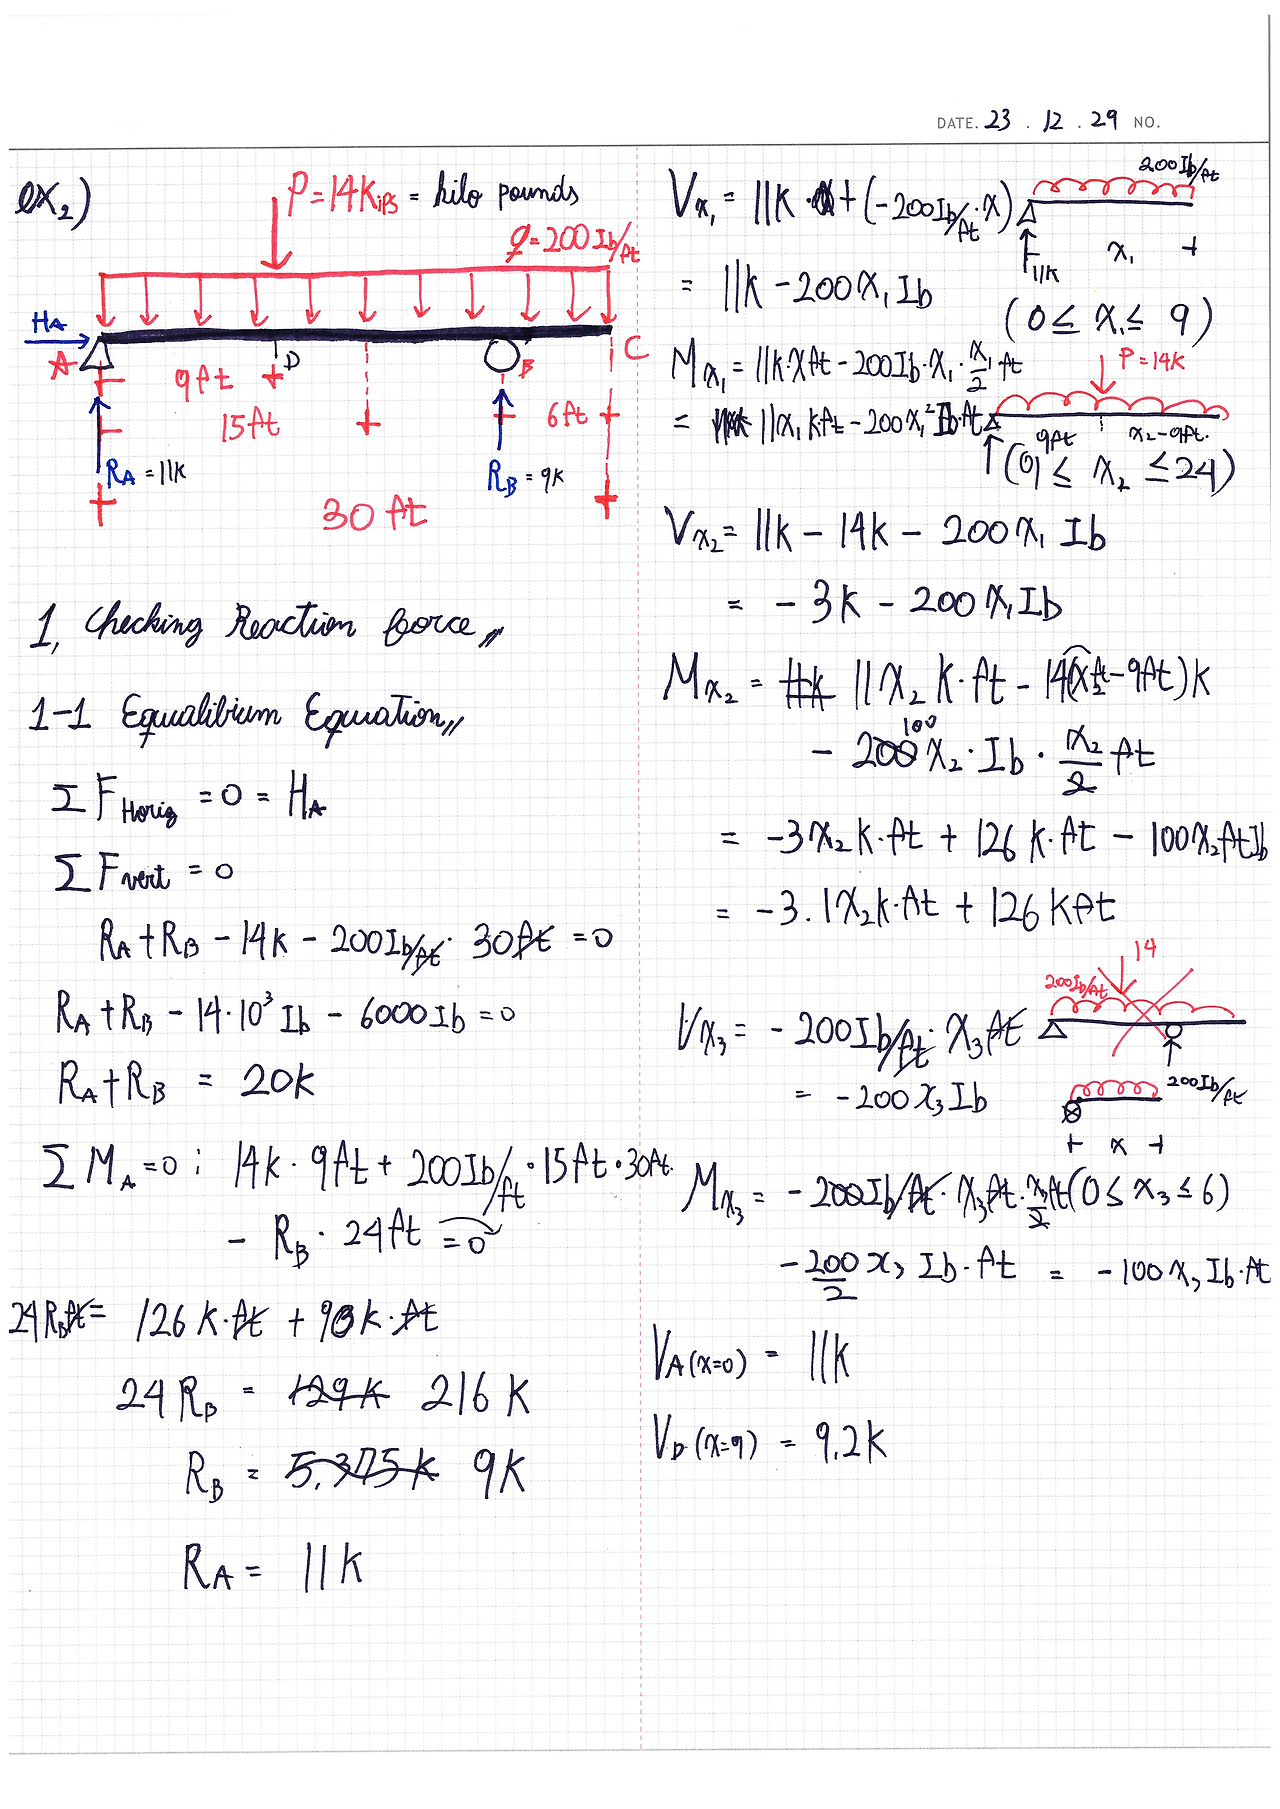 DATE. 23 . 12 . 29 NO.
ex2)
P=14kips = kilo pounds
q=200Ib/ft
HA
A
D
B
C
9ft
15ft
6ft
RA = 11k
RB = 9k
30 ft
1, Checking Reaction force,,
1-1 Equalibium Equation,,
ΣF Horiz = 0 = HA
ΣF vert = 0
RA + RB - 14k - 200Ib/ft · 30ft = 0
RA + RB - 14·10³ Ib - 6000Ib = 0
RA + RB = 20k
ΣMA = 0 ; 14k · 9ft + 200Ib/ft · 15ft · 30ft.
- RB · 24ft = 0
24RBft = 126 k·ft + 90k·ft
24 RB = 129k 216 k
RB = 5.375k 9k
RA = 11k
Vx1 = 11k + (-200Ib/ft · x)
200Ib/ft
11k
x1
= 11k - 200x1 Ib
(0 ≤ x1 ≤ 9)
Mx1 = 11k·xft - 200Ib·x1·x1/2 ft
P=14k
= 11x1 kft - 200x1² Ib·ft
9ft
x2-9ft.
(9 ≤ x2 ≤ 24)
Vx2 = 11k - 14k - 200x1 Ib
= -3k - 200x1 Ib
Mx2 = 11k 11x2 k·ft - 14(x2ft-9ft)k
- 200 100 x2·Ib · x2/2 ft
= -3x2 k·ft + 126 k·ft - 100x2ftIb
= -3.1x2k·ft + 126 kft
14
200Ib/ft
Vx3 = -200Ib/ft · x3ft
= -200x3 Ib
200Ib/ft
x
Mx3 = -200Ib/ft · x3ft · x3/2 ft (0 ≤ x3 ≤ 6)
-200/2 x3 Ib·ft = -100x3 Ib·ft
VA(x=0) = 11k
VD(x=9) = 9.2k